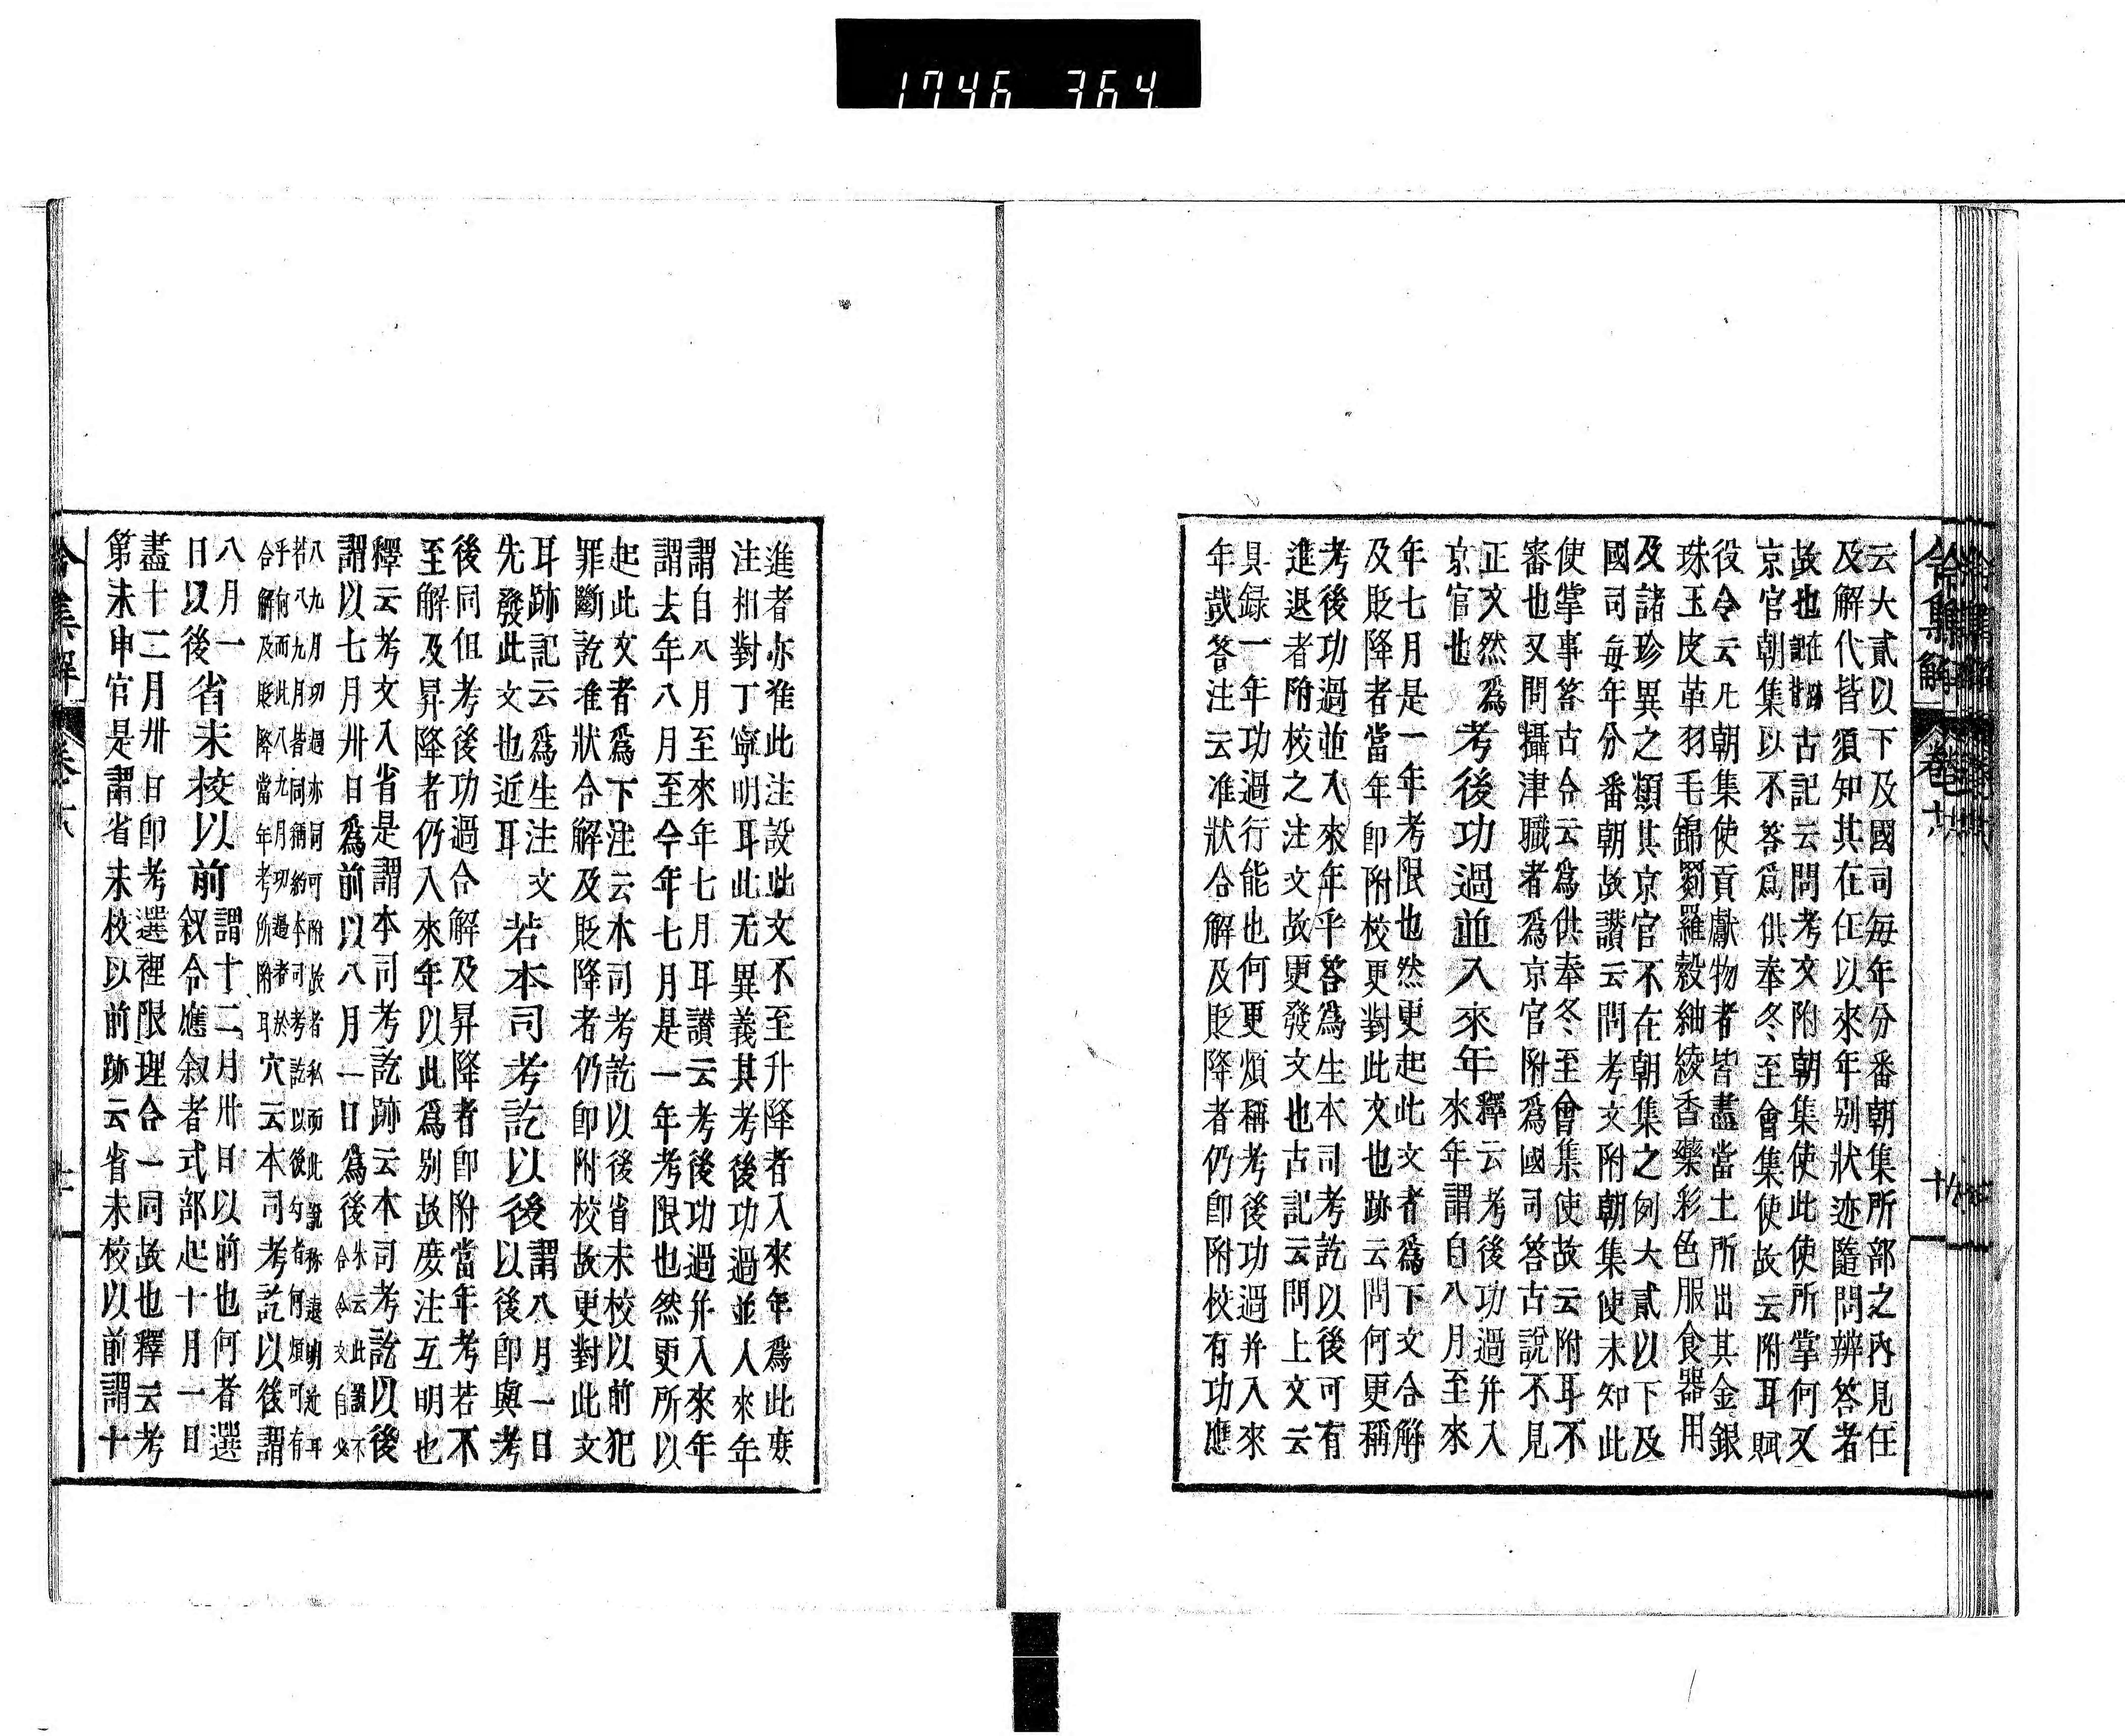 1746 364
云大貳以下及國司每年分番朝集所部之內見任
及解代皆須知其在任以來年別狀迹隨問辨答者
故也古記云問考文附朝集使此使所掌何又
京官朝集以不答爲供奉冬至會集使故云附耳賦
役令云凡朝集使貢獻物者皆盡當土所出其金銀
珠玉皮革羽毛錦罽羅縠紬綾香藥彩色服食器用
及諸珍異之類其京官不在朝集之例大貳以下及
國司每年分番朝故讃云問考文附朝集使未知此
使掌事答古令云爲供奉冬至會集使故云附耳不
審也又問攝津職者爲京官附爲國司答古說不見
正文然爲
京官也
考後功過並入來年
釋云考後功過并入
來年謂自八月至來
年七月是一年考限也然更起此文者爲下文合解
及貶降者當年卽附校更對此文也跡云問何更稱
考後功過並入來年乎答爲生本司考訖以後可有
進退者附校之注文故更發文也古記云問上文云
具録一年功過行能也何更煩稱考後功過并入來
年哉答注云准狀合解及貶降者仍卽附校有功應
令集解 卷
進者亦准此注設此文不至升降者入來年爲此度
注相對丁寧明耳此无異義其考後功過並人來年
謂自八月至來年七月耳讃云考後功過并入來年
謂去年八月至今年七月是一年考限也然更所以
起此文者爲下注云本司考訖以後省未校以前犯
罪斷訖准狀合解及貶降者仍卽附校故更對此文
耳跡記云爲生注文
先發此文也近耳
若本司考訖以後
謂八月一日
以後卽與考
後同但考後功過合解及昇降者卽附當年考若不
至解及昇降者仍入來年以此爲別故度注互明也
釋云考文入省是謂本司考訖跡云本司考訖以後
謂以七月卅日爲前以八月一日爲後
朱云此讃不
合令文自必
八九月功過亦同可附故者私而此說称違明近耳
若八九月皆同稱約本司考訖以後勾者何煩可有
乎何而此八九月功過者於
合解及貶降當年考所附耳
穴云本司考訖以後謂
八月一
日以後
省未校以前
謂十二月卅日以前也何者選
叙令應叙者式部起十月一日
盡十二月卅日卽考選裡限理合一同故也釋云考
第未申官是謂省未校以前跡云省未校以前謂十